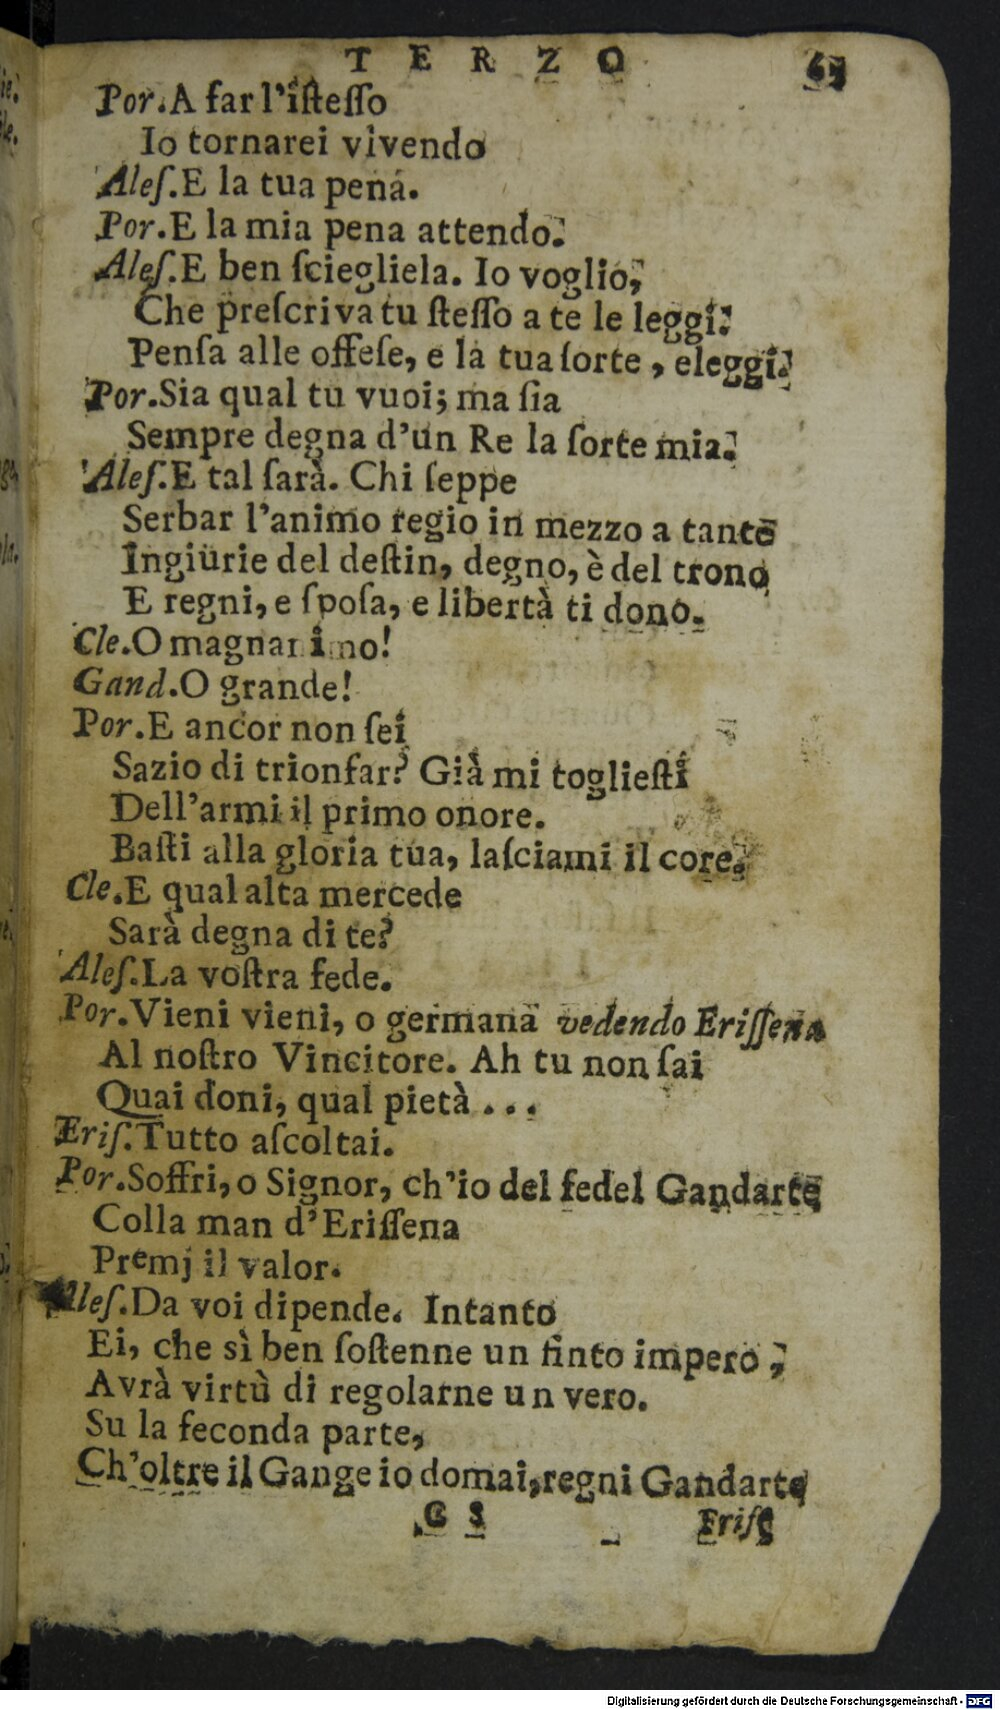 TERZO 65
Por. A far l'iſteſſo
Io tornarei vivendo
Aleſ. E la tua pena.
Por. E la mia pena attendo.
Aleſ. E ben ſciegliela. Io voglio,
Che preſcriva tu ſteſſo a te le leggi.
Penſa alle offeſe, e la tua ſorte, eleggi.
Por. Sia qual tu vuoi; ma ſia
Sempre degna d'un Re la ſorte mia.
Aleſ. E tal ſarà. Chi ſeppe
Serbar l'animo regio in mezzo a tante
Ingiurie del deſtin, degno, è del trono
E regni, e ſpoſa, e libertà ti dono.
Cle. O magnanimo!
Gand. O grande!
Por. E ancor non ſei
Sazio di trionfar? Già mi toglieſti
Dell'armi il primo onore.
Baſti alla gloria tua, laſciami il core.
Cle. E qual alta mercede
Sarà degna di te?
Aleſ. La voſtra fede.
Por. Vieni vieni, o germana vedendo Eriſſena
Al noſtro Vincitore. Ah tu non ſai
Quai doni, qual pietà . . .
Eriſ. Tutto aſcoltai.
Por. Soffri, o Signor, ch'io del fedel Gandarte
Colla man d'Eriſſena
Premj il valor.
Aleſ. Da voi dipende. Intanto
Ei, che sì ben ſoſtenne un finto impero,
Avrà virtù di regolarne un vero.
Su la feconda parte,
Ch'oltre il Gange io domai, regni Gandarte
G 5 Eriſ
Digitalisierung gefördert durch die Deutsche Forschungsgemeinschaft - DFG